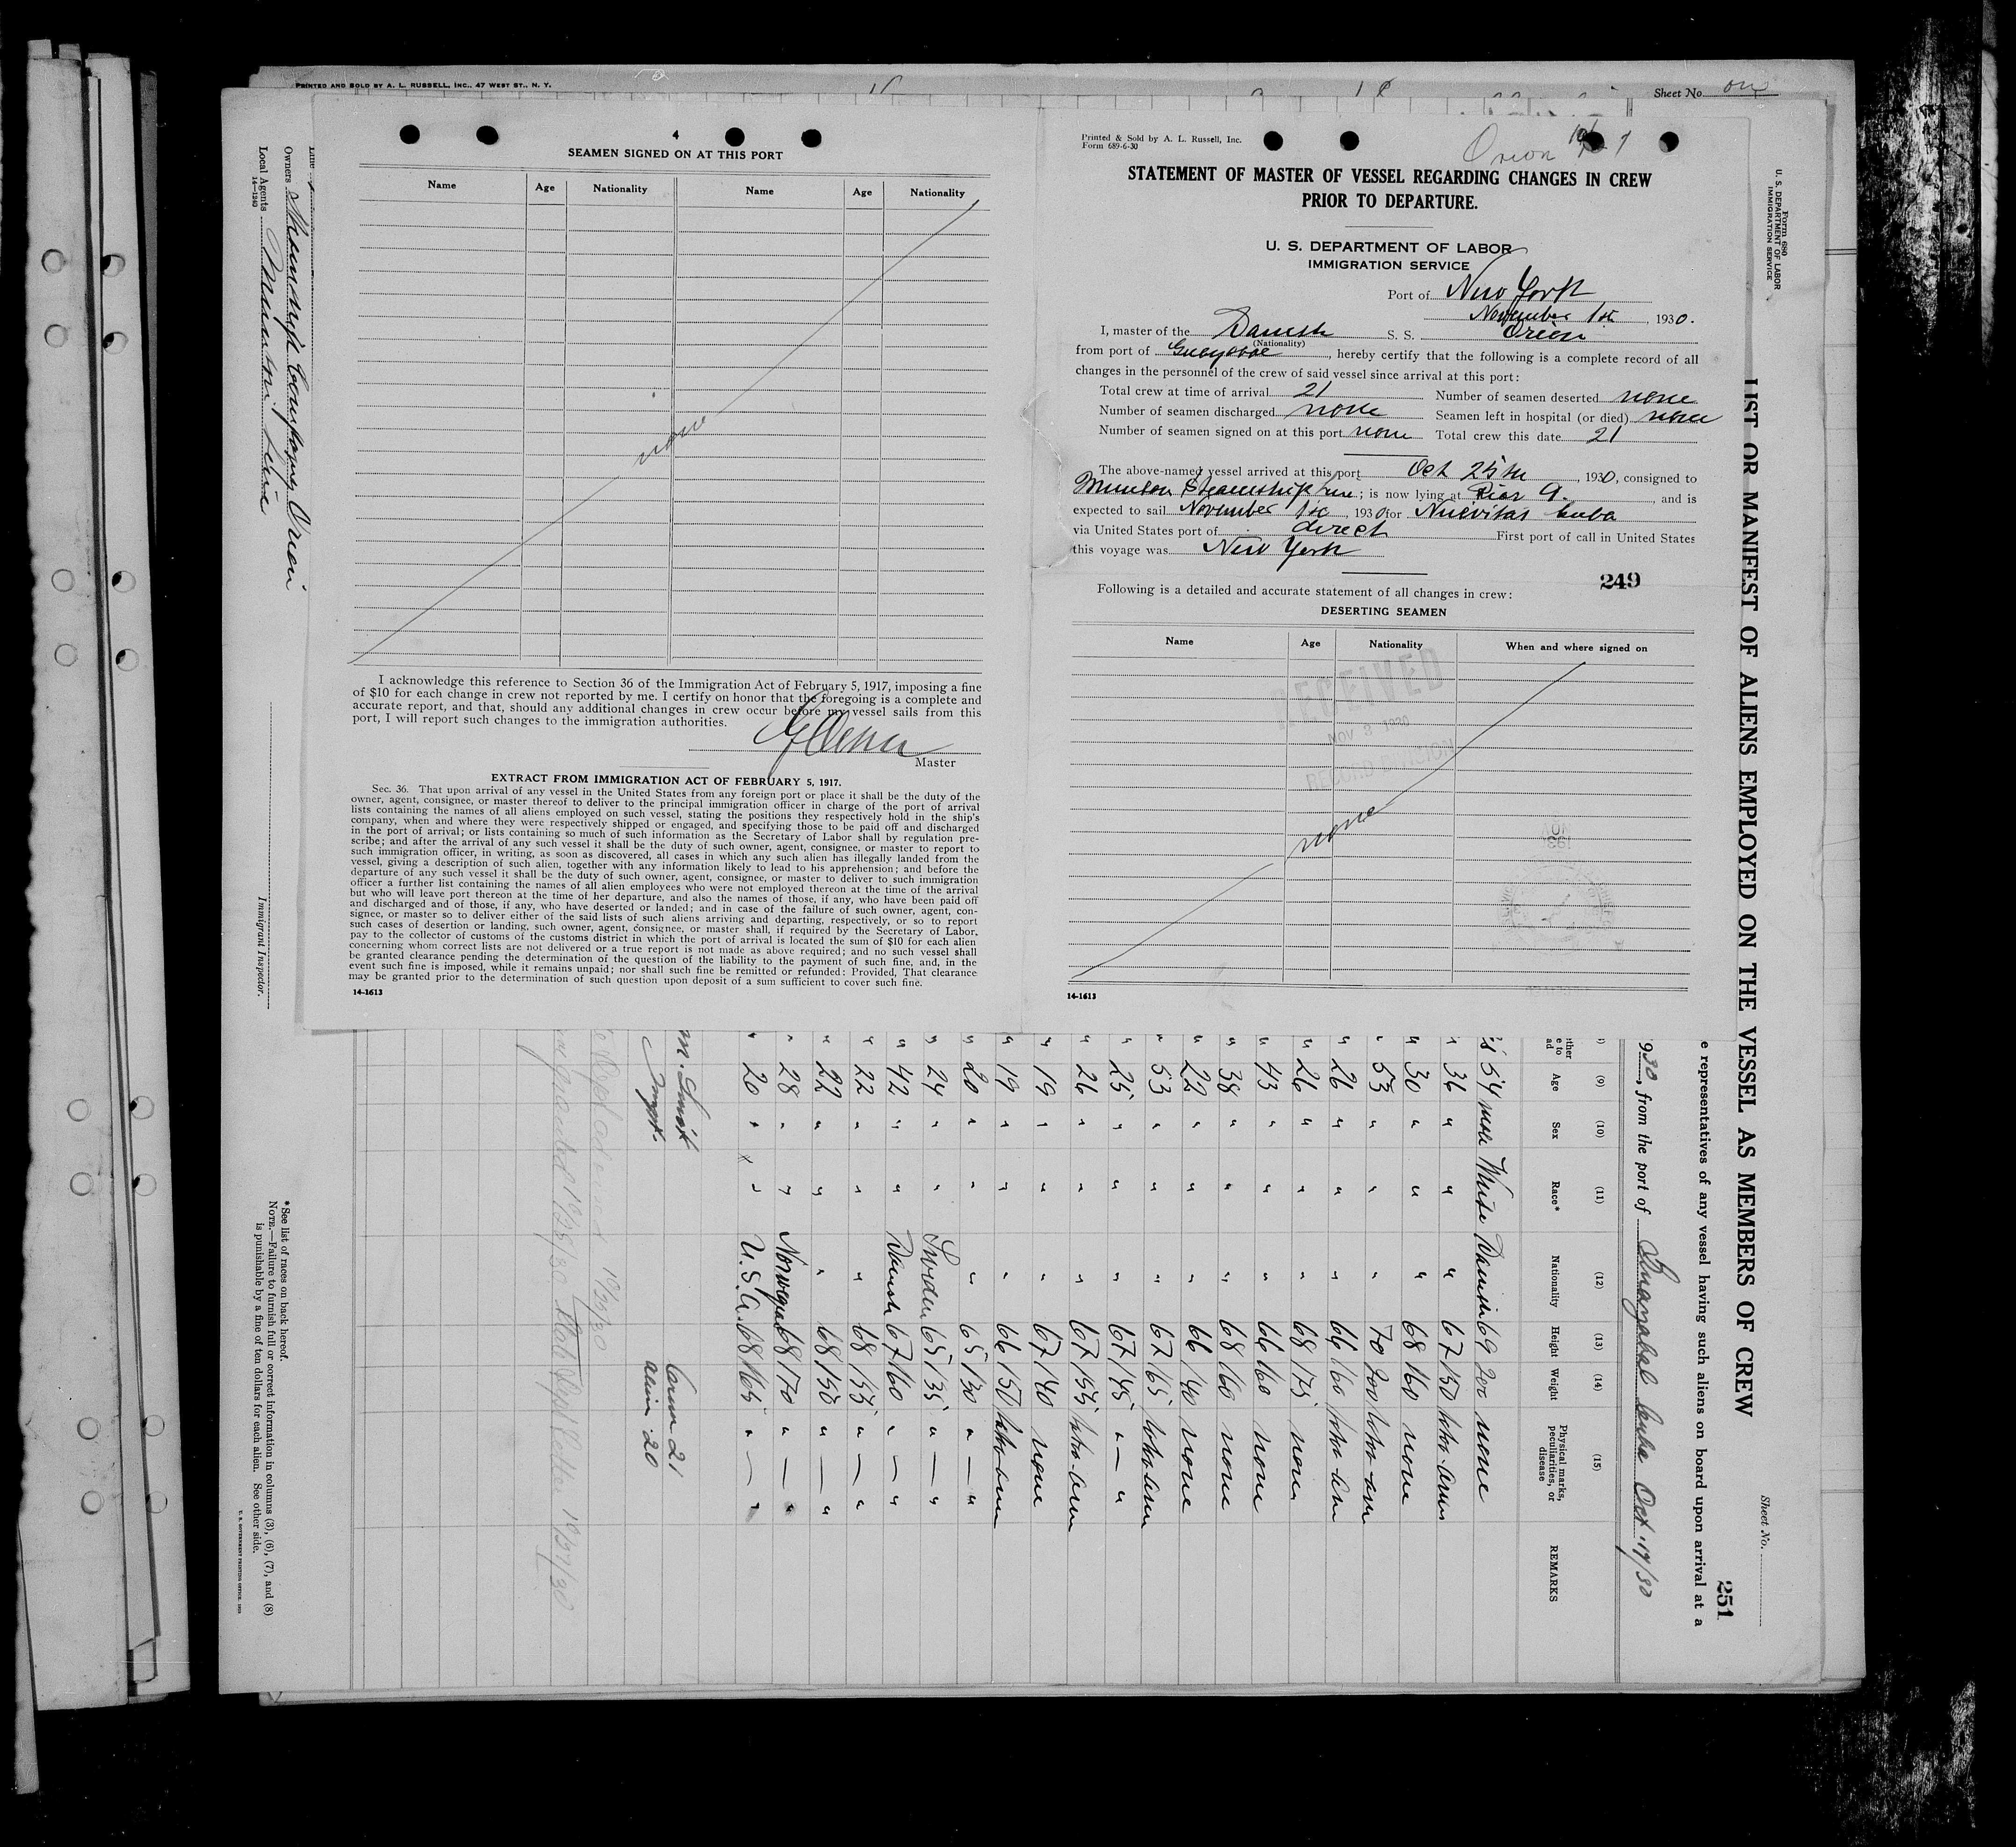 PRINTED AND SOLD BY A. L. RUSSELL, INC., 47 WEST ST., N. Y.
Sheet No. one
4
SEAMEN SIGNED ON AT THIS PORT
Name Age Nationality Name Age Nationality
none
I acknowledge this reference to Section 36 of the Immigration Act of February 5, 1917, imposing a fine
of $10 for each change in crew not reported by me. I certify on honor that the foregoing is a complete and
accurate report, and that, should any additional changes in crew occur before my vessel sails from this
port, I will report such changes to the immigration authorities.
Master
EXTRACT FROM IMMIGRATION ACT OF FEBRUARY 5, 1917.
Sec. 36. That upon arrival of any vessel in the United States from any foreign port or place it shall be the duty of the
owner, agent, consignee, or master thereof to deliver to the principal immigration officer in charge of the port of arrival
lists containing the names of all aliens employed on such vessel, stating the positions they respectively hold in the ship's
company, when and where they were respectively shipped or engaged, and specifying those to be paid off and discharged
in the port of arrival; or lists containing so much of such information as the Secretary of Labor shall by regulation pre-
scribe; and after the arrival of any such vessel it shall be the duty of such owner, agent, consignee, or master to report to
such immigration officer, in writing, as soon as discovered, all cases in which any such alien has illegally landed from the
vessel, giving a description of such alien, together with any information likely to lead to his apprehension; and before the
departure of any such vessel it shall be the duty of such owner, agent, consignee, or master to deliver to such immigration
officer a further list containing the names of all alien employees who were not employed thereon at the time of the arrival
but who will leave port thereon at the time of her departure, and also the names of those, if any, who have been paid off
and discharged and of those, if any, who have deserted or landed; and in case of the failure of such owner, agent, con-
signee, or master so to deliver either of the said lists of such aliens arriving and departing, respectively, or so to report
such cases of desertion or landing, such owner, agent, consignee, or master shall, if required by the Secretary of Labor,
pay to the collector of customs of the customs district in which the port of arrival is located the sum of $10 for each alien
concerning whom correct lists are not delivered or a true report is not made as above required; and no such vessel shall
be granted clearance pending the determination of the question of the liability to the payment of such fine, and, in the
event such fine is imposed, while it remains unpaid; nor shall such fine be remitted or refunded: Provided, That clearance
may be granted prior to the determination of such question upon deposit of a sum sufficient to cover such fine.
14-1613
Printed & Sold by A. L. Russell, Inc.
Form 689-6-30
Orion
STATEMENT OF MASTER OF VESSEL REGARDING CHANGES IN CREW
PRIOR TO DEPARTURE.
U. S. DEPARTMENT OF LABOR
IMMIGRATION SERVICE
Port of New York
November 1st, 1930.
I, master of the Danish S. S. Orion
(Nationality)
from port of , hereby certify that the following is a complete record of all
changes in the personnel of the crew of said vessel since arrival at this port:
Total crew at time of arrival 21 Number of seamen deserted none
Number of seamen discharged none Seamen left in hospital (or died) none
Number of seamen signed on at this port none Total crew this date 21
The above-named vessel arrived at this port Oct 25th, 1930, consigned to
Munson Steamship Line; is now lying at Pier 9., and is
expected to sail November 1st, 1930 for Nuevitas Cuba
via United States port of direct First port of call in United States
this voyage was New York
249
Following is a detailed and accurate statement of all changes in crew:
DESERTING SEAMEN
Name Age Nationality When and where signed on
RECEIVED
NOV 3 1930
RECORD DIVISION
none
14-1613
Form 680
U. S. DEPARTMENT OF LABOR
IMMIGRATION SERVICE
Sheet No.
251
LIST OR MANIFEST OF ALIENS EMPLOYED ON THE VESSEL AS MEMBERS OF CREW
e representatives of any vessel having such aliens on board upon arrival at a
930, from the port of Cuba Oct. 19/30
(9) (10) (11) (12) (13) (14) (15)
Age Sex Race* Nationality Height Weight Physical marks, peculiarities, or disease REMARKS
54 male White Danish 69 200 none
36 " " " 67 150 tatoo arms
30 " " " 68 160 none
53 " " " 70 200 tatoo arm
26 " " " 66 160 tatoo arm
26 " " " 68 175 none
43 " " " 66 160 none
38 " " " 68 160 none
22 " " " 66 140 none
53 " " " 67 165 tatoo arm
25 " " " 67 145 " — "
26 " " " 67 155 tatoo arm
19 " " " 67 140 none
19 " " " 66 150 tatoo arm
20 " " " 65 130 " — "
24 " " Sweden 65 135 " — "
42 " " Danish 67 160 " — "
22 " " " 68 155 " — "
22 " " " 68 150 " — "
28 " " Norwegian 68 170 " — "
20 " x " U.S.A. 68 165 " — "
Crew 21
Alien 20
Owners Company Orion
Local Agents Munson Line
14-1240
Immigrant Inspector.
* See list of races on back hereof.
NOTE.—Failure to furnish full or correct information in columns (3), (6), (7), and (8)
is punishable by a fine of ten dollars for each alien. See other side.